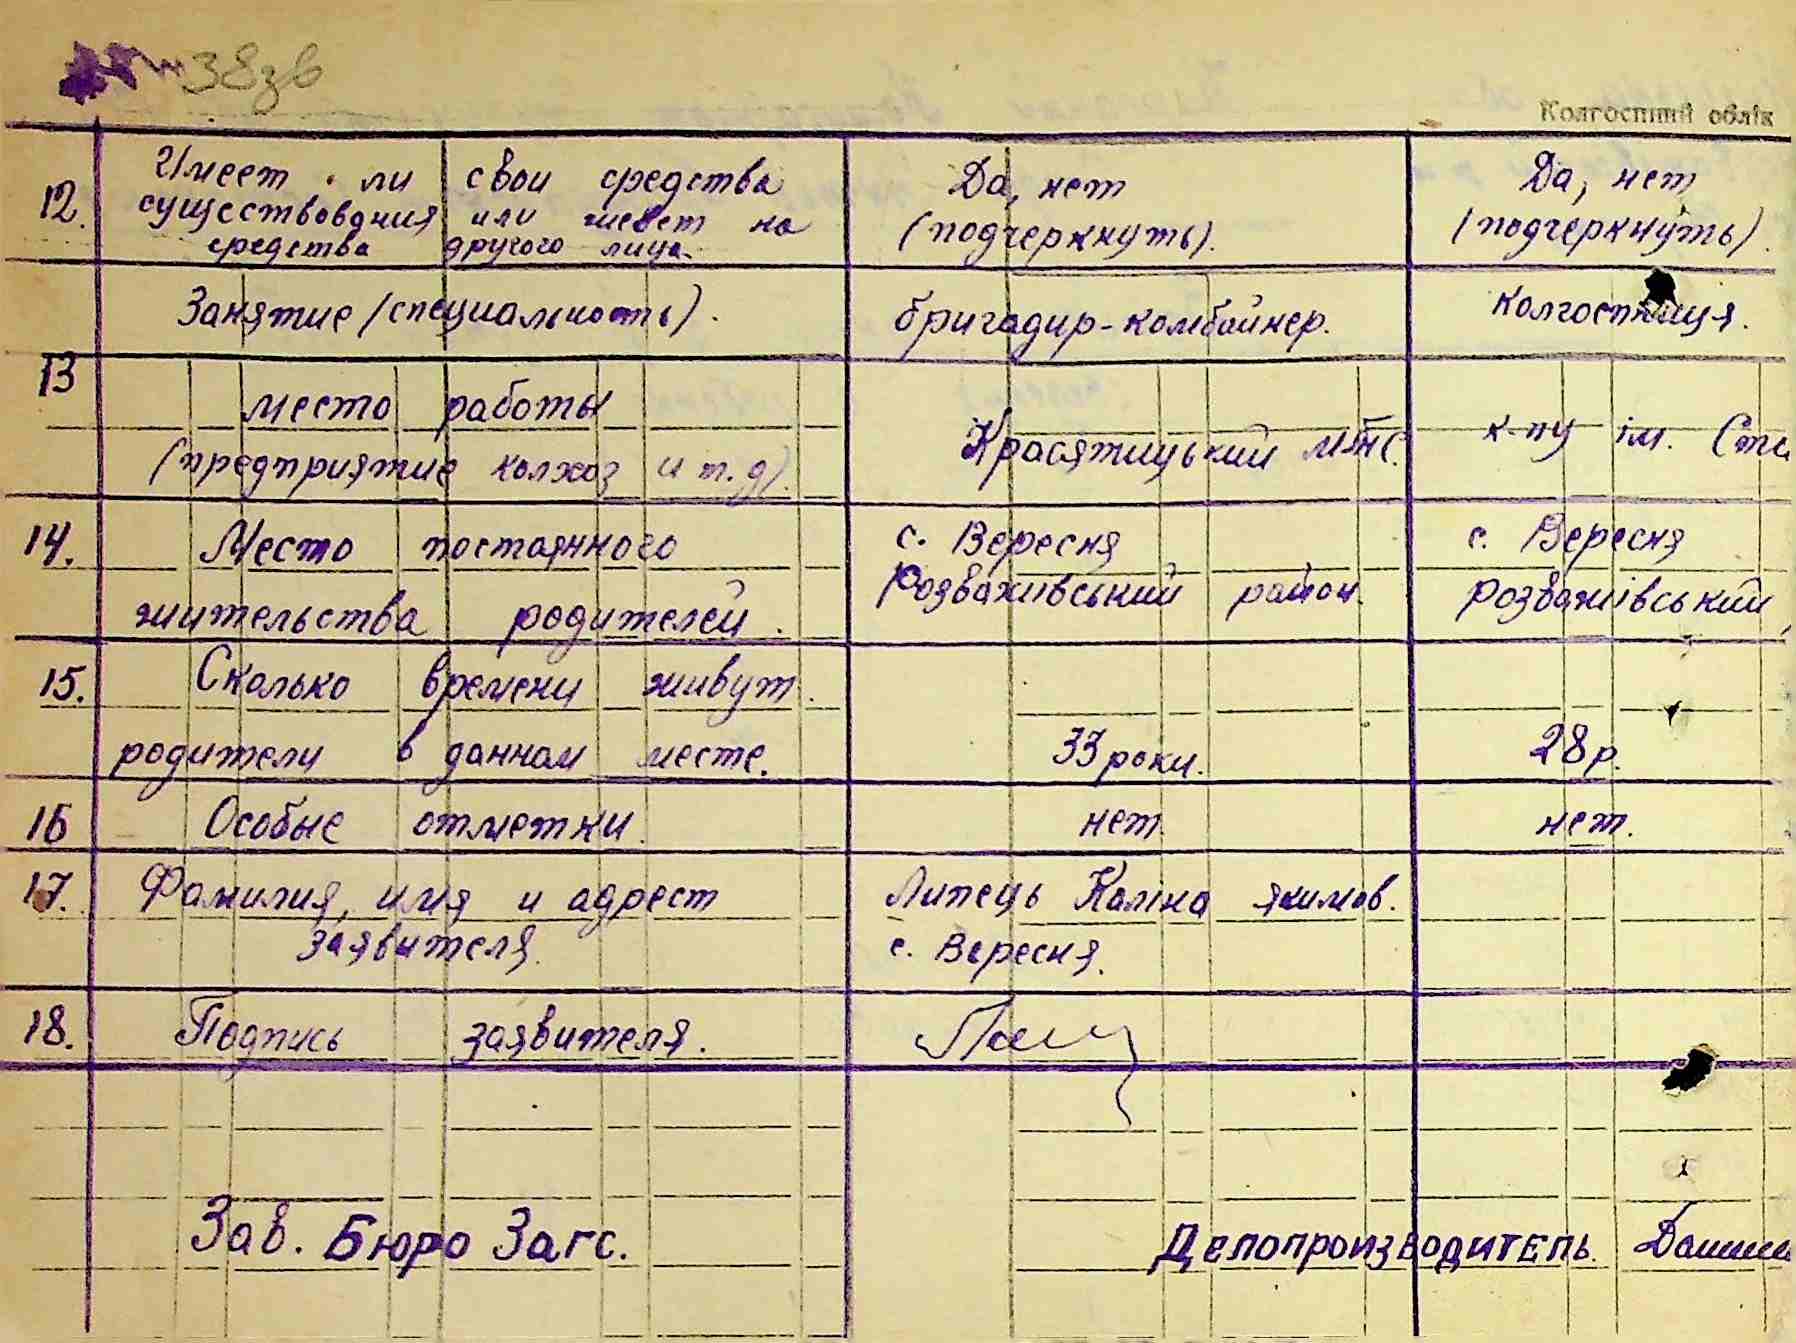 38зв
Колгоспний облік
12. Имеет ли свои средства Да, нет Да, нет
существования или живет на (подчеркнуть). (подчеркнуть).
средства другого лица.
Занятие (специальность). бригадир-комбайнер. колгоспниця.
13 место работы
(предприятие колхоз и т.д). Красятицький МТС. к-пу ім.
14. Место постоянного с. Вересня с. Вересня
жительства родителей. Розважівський район. Розважівський
15. Сколько времени живут
родители в данном месте. 33 роки. 28 р.
16 Особые отметки. нет. нет.
17. Фамилия, имя и адрест Липець Каліна Якимов.
заявителя. с. Вересня.
18. Подпись заявителя.
Зав. Бюро Загс. Делопроизводитель.